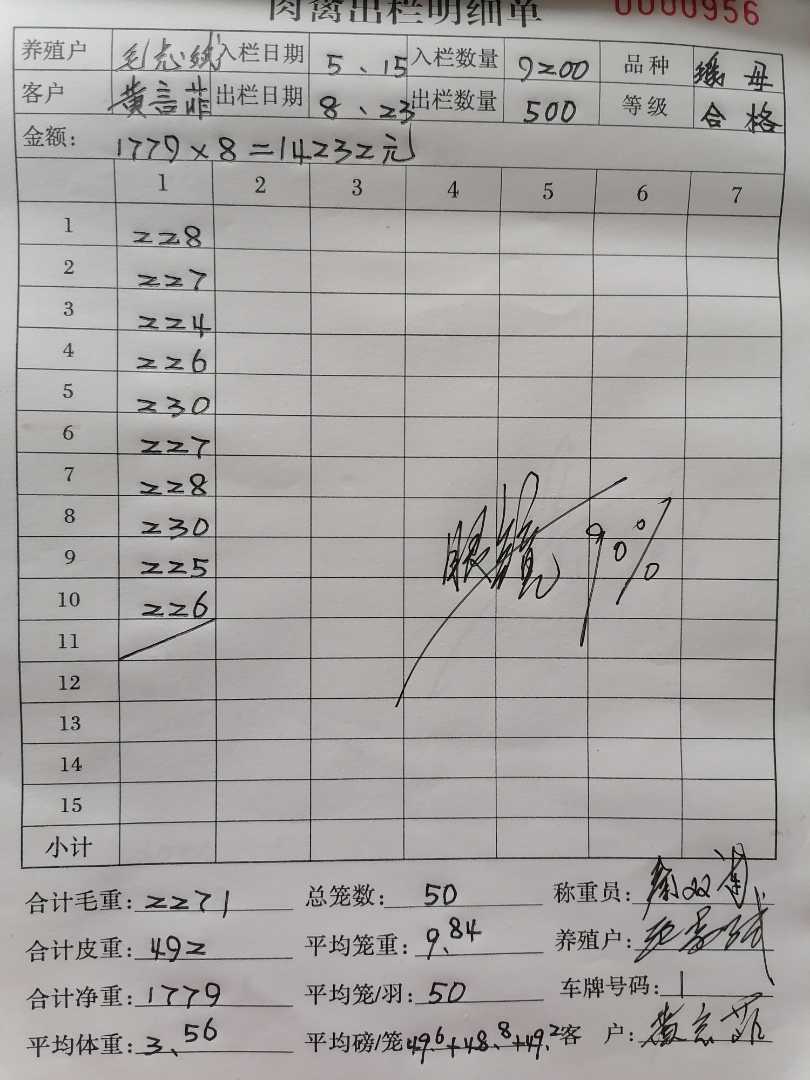 肉禽出栏明细单 0000956
养殖户 入栏日期 5、15 入栏数量 9200 品种 母
客户 黄言菲 出栏日期 8、23 出栏数量 500 等级 合格
金额: 1779×8=14232元
1 2 3 4 5 6 7
1 228
2 227
3 224
4 226
5 230
6 227
7 228
8 230
9 225
10 226
11
12
13
14
15
小计
90%
合计毛重: 2271 总笼数: 50 称重员:
合计皮重: 492 平均笼重: 9.84 养殖户:
合计净重: 1779 平均笼/羽: 50 车牌号码: 1
平均体重: 3、56 平均磅/笼 49.6+48.8+49.2 客户: 黄言菲